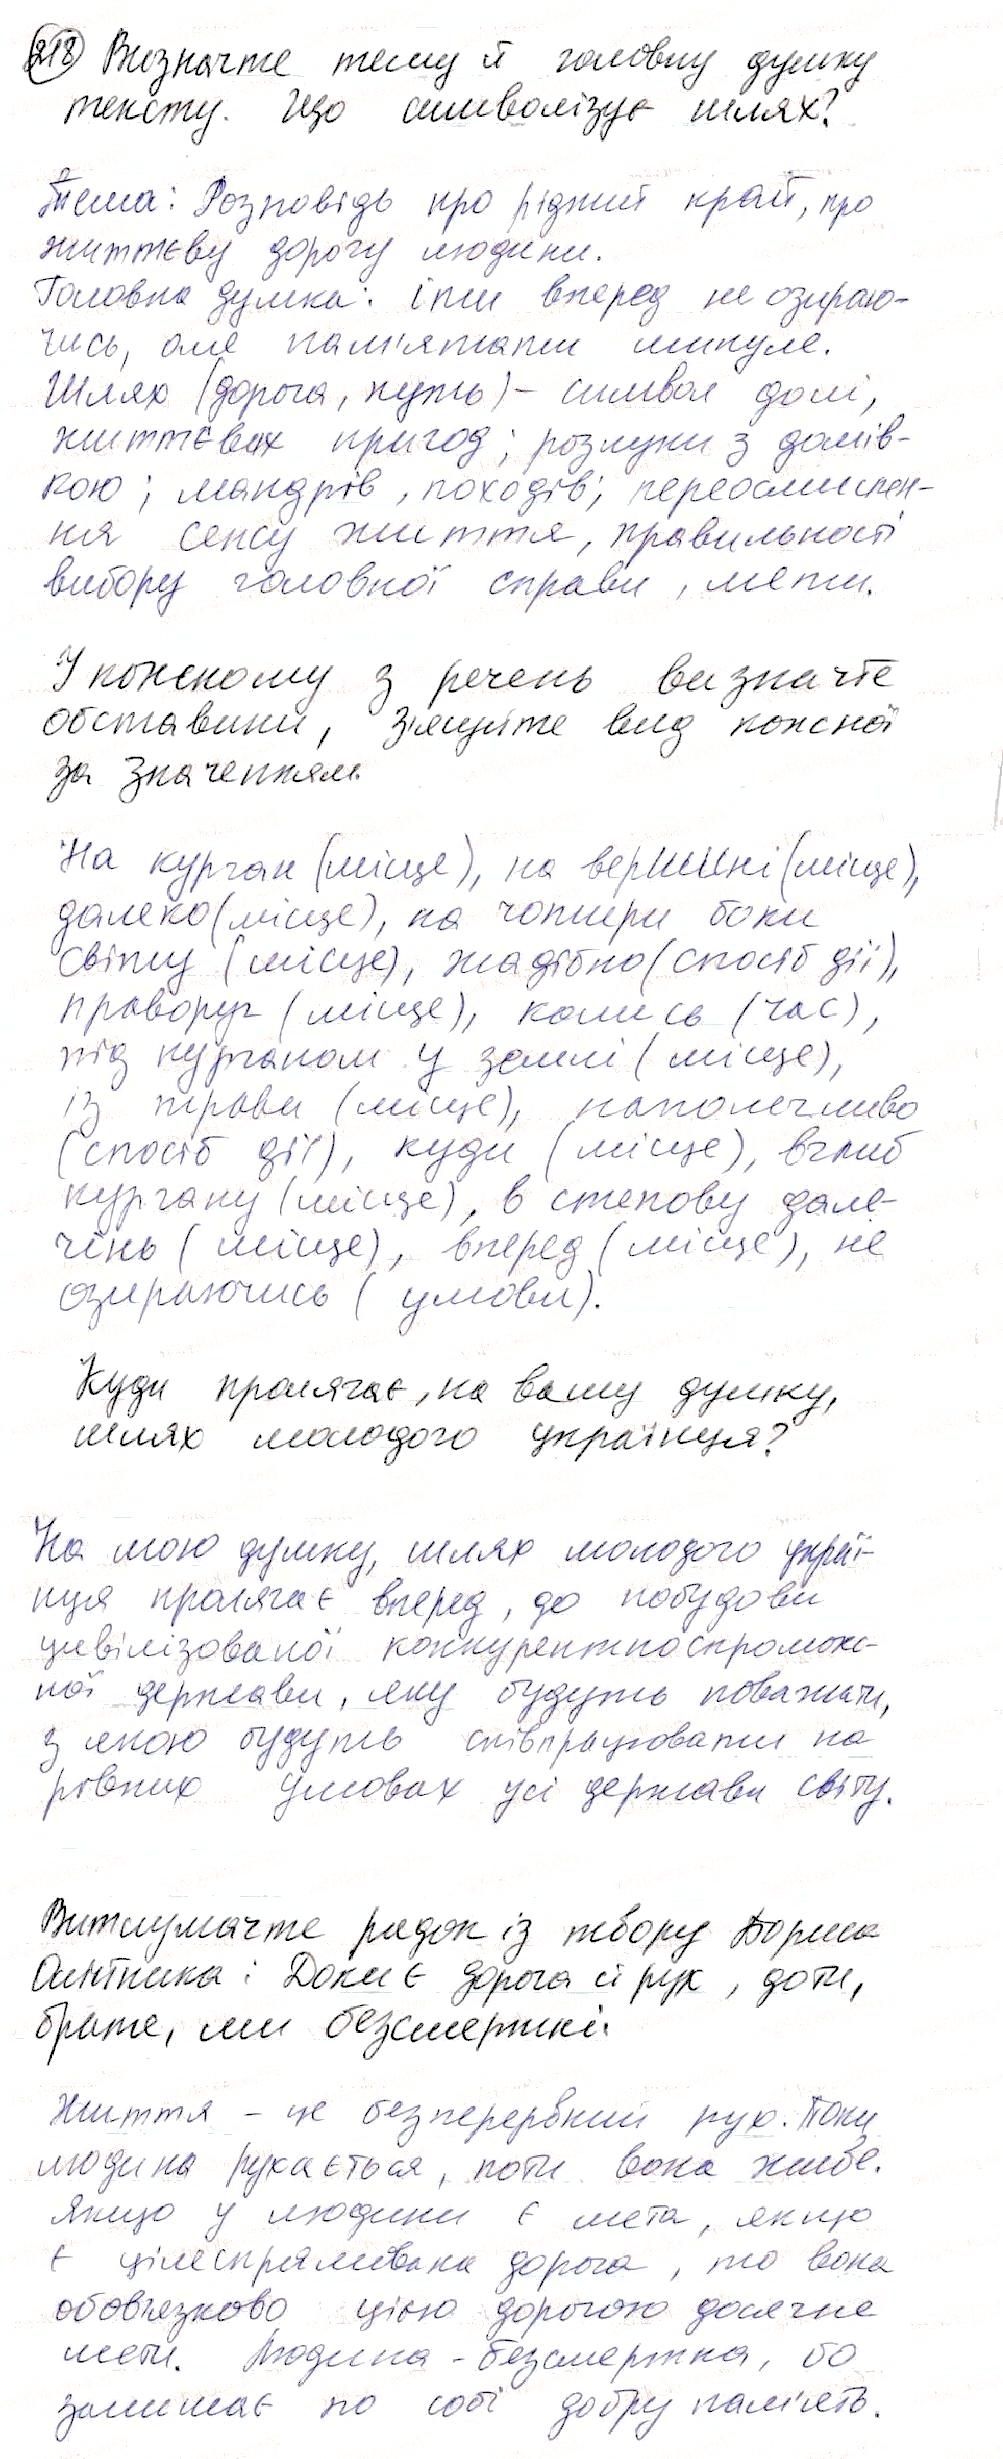 218 Визначте тему й головну думку
тексту. Що символізує шлях?
Тема: Розповідь про рідний край, про
життєву дорогу людини.
Головна думка: іти вперед не озираю-
чись, але пам'ятати минуле.
Шлях (дорога, путь) - символ долі,
життєвих пригод; розлуки з домів-
кою; мандрів, походів; переосмислен-
ня сенсу життя, правильності
вибору головної справи, мети.
У кожному з речень визначте
обставини, з'ясуйте вид кожної
за значенням.
На курган (місце), на вершині (місце),
далеко (місце), на чотири боки
світу (місце), жадібно (спосіб дії),
праворуч (місце), колись (час),
під курганом у землі (місце),
із трави (місце), наполегливо
(спосіб дії), куди (місце), вглиб
кургану (місце), в степову дале-
чінь (місце), вперед (місце), не
озираючись (умови).
Куди пролягає, на вашу думку,
шлях молодого українця?
На мою думку, шлях молодого украї-
нця пролягає вперед, до побудови
цивілізованої конкурентноспромож-
ної держави, яку будуть поважати,
з якою будуть співпрацювати на
рівних умовах усі держави світу.
Витлумачте рядок із твору Бориса
Олійника: Доки є дорога й рух, доти,
брате, ми безсмертні.
Життя - це безперервний рух. Поки
людина рухається, поти вона живе.
Якщо у людини є мета, якщо
є цілеспрямована дорога, то вона
обов'язково цією дорогою досягне
мети. Людина - безсмертна, бо
залишає по собі добру пам'ять.